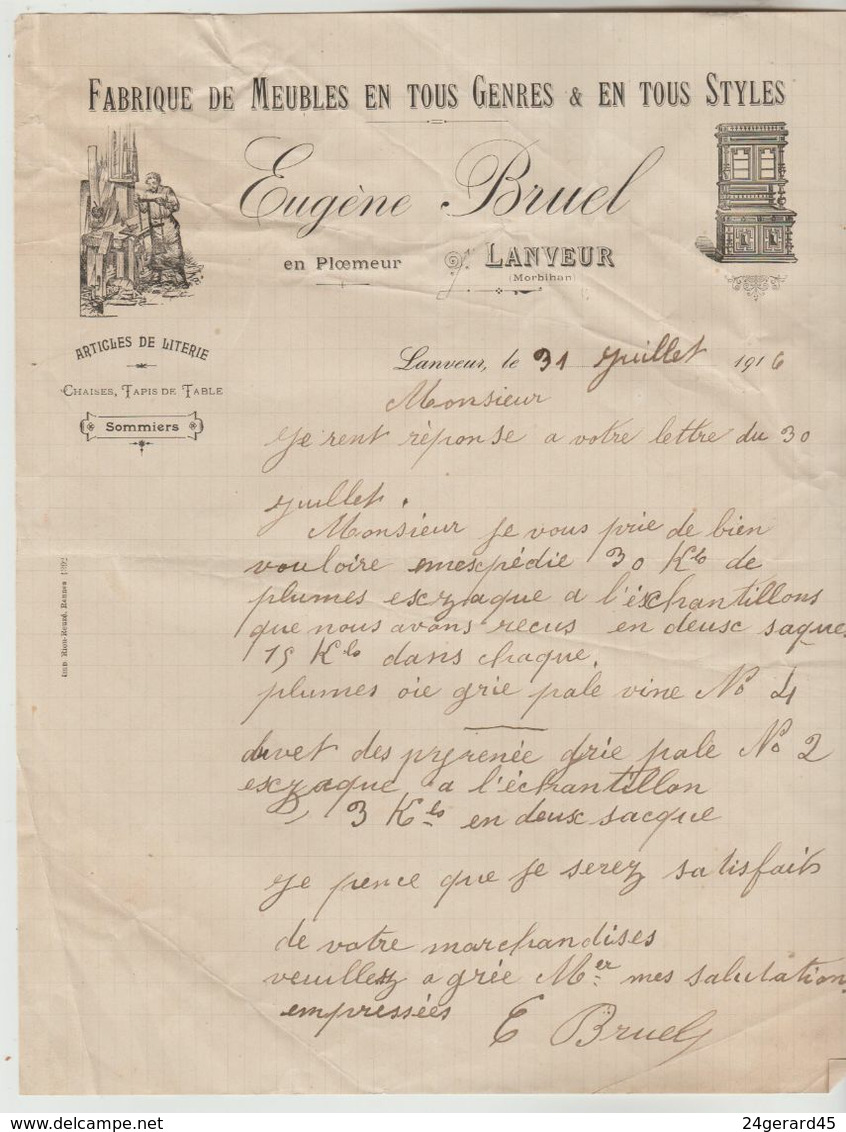 FABRIQUE DE MEUBLES EN TOUS GENRES & EN TOUS STYLES
Eugène Bruel
en Plœmeur LANVEUR
(Morbihan)
ARTICLES DE LITERIE
CHAISES, TAPIS DE TABLE
Sommiers
Lanveur, le 31 Juillet 1916
Monsieur
Je rent rèponse a votre lettre du 30
Juillet.
Monsieur Je vous prie de bien
vouloire emexpédie 30 Klo de
plumes exzaque a l'éxchantillons
que nous avons recus en deux saques
15 Klo dans chaque.
plumes oie grie pale vine No 4
duvet des pyrenée grie pale No 2
exzaque a l'échantillon
3 Klo en deux sacque
Je pence que Je serez satisfait
de votre marchandises
veuillez agrée Mer mes salutation
empressées E Bruel
Imp. Rion-Reuzé, Rennes 1892
www.delcampe.net
24gerard45